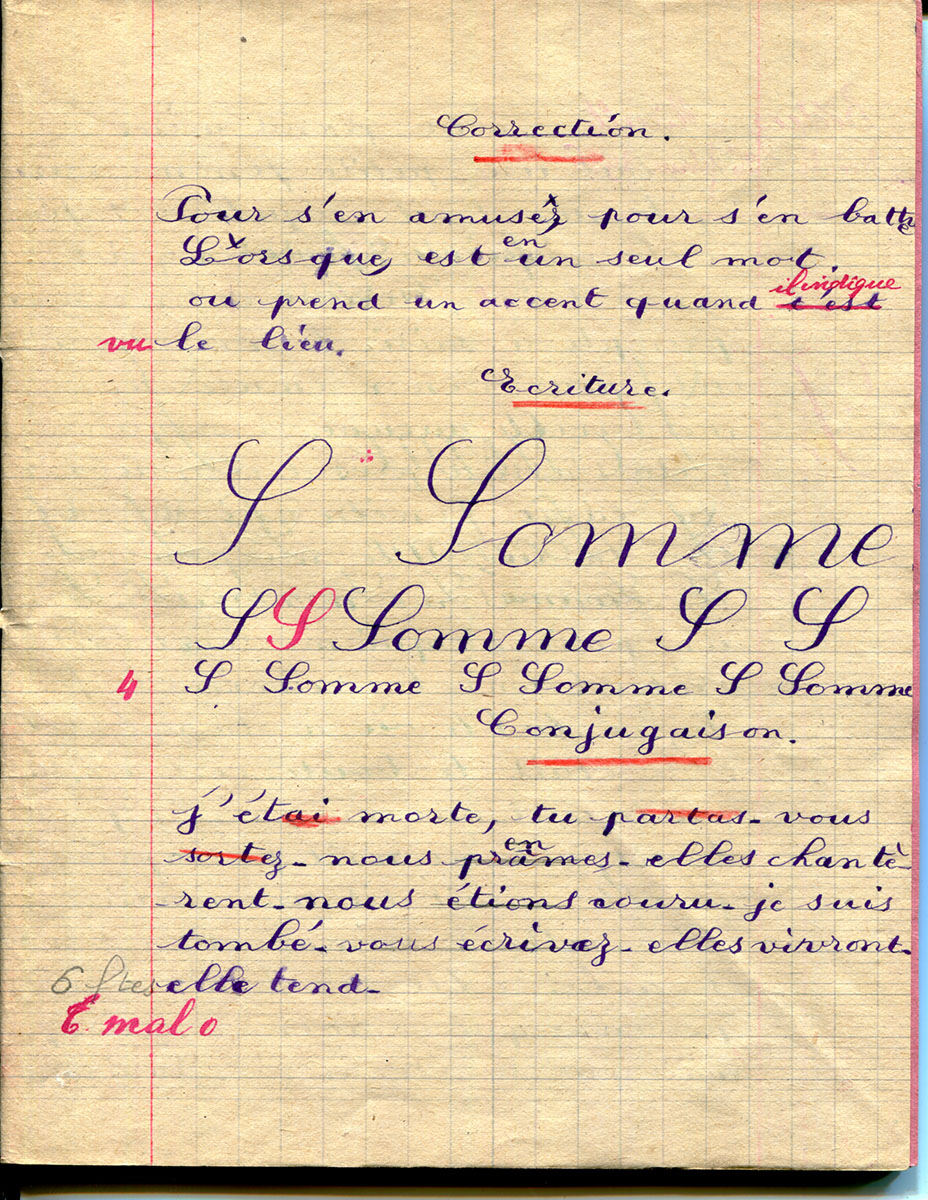 Correction.
Pour s'en amuser pour s'en battre
Lorsque, est en un seul mot.
où prend un accent quand c'est il indique
vu le lieu.
Ecriture.
S Somme
S S Somme S S
4 S Somme S Somme S Somme
Conjugaison.
j'étai morte, tu partas- vous
sortez- nous prâmes- en elles chantè-
rent- nous étions couru- je suis
tombé- vous écrivez- elles vivront-
6 ftes elle tend-
T. mal 0